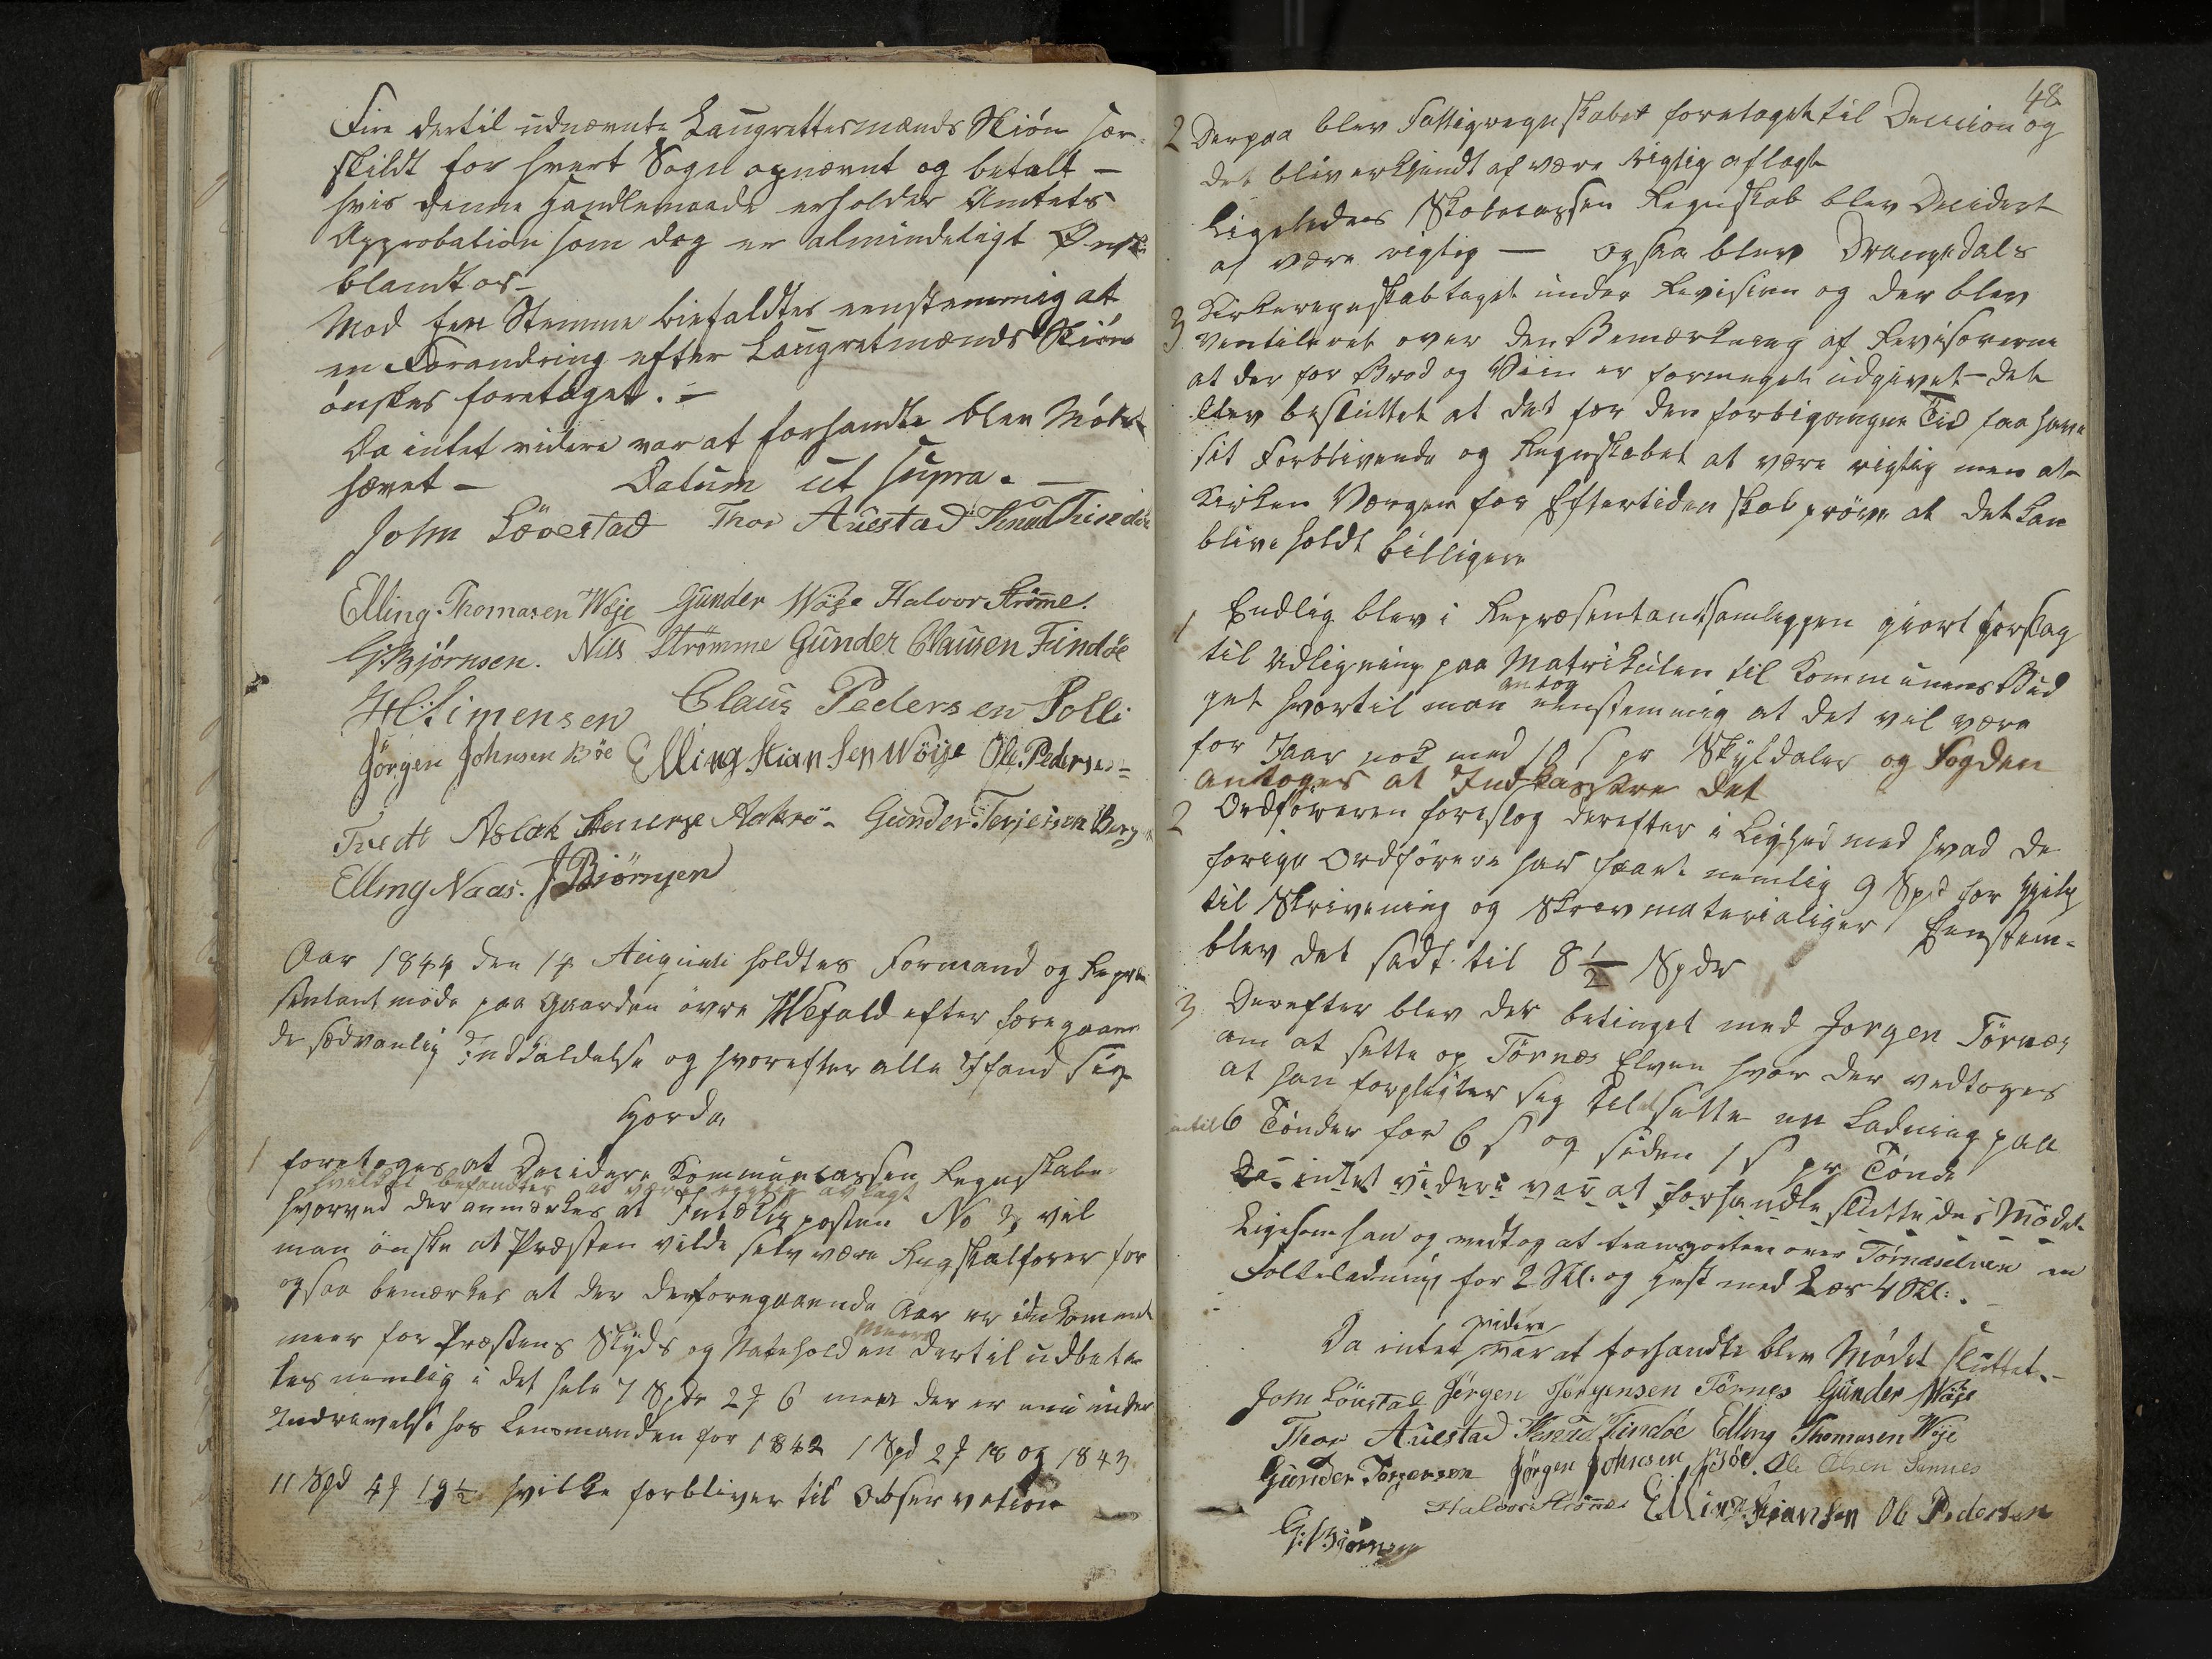 Fire dertil udnævnte Laugrettesmænds Skiøn sær-
skildt for hvert Sogn opnævnt og betalt –
hvis denne Handlemaade erholder Amtets
Approbation som dog er almindeligt Ønske
blandt os –
Mod fem Stemme biefaldtes eenstemmig at
en Forandring efter Laugretmænds Skiøn
ønskes foretaget. –
Da intet videre var at forhandle blev Mødet
hævet – Datum ut supra. –
John Løvestad Thor Auestad Knud Findøe
Elling Thomasen Wøje Gunder Wøje Halvor Strømme.
G. Bjørnsen. Nils Strømme Gunder Clausen Findøe
H. Simensen Claus Pedersen Solli
Jørgen Johnsen Bøe Elling Kiansen Wøije Ole Pedersen
Tvedt Aslak Aakre Gunder Terjesen Berg
Elling Naas. J Biørnsen
Aar 1844 den 14 Augusti holdtes Formand og Repræ
sentant møde paa Gaarden øvre Wefald efter foregaaen
de sædvanlig Indkaldelse og hvorefter alle Ifand sig
Hvorda
1 foretoges at Decidere Kommunecassen Regnskabe
hvilket befandtes at være rigtig aflagt
hvorved der anmærkes at Indtægtposten No 3 vil
man ønske at Præsten vilde selv være Regnskabsfører for
ogsaa bemærkes at der de foregaaende Aar er indkommet
meer for Præstens Skyds og Natehold en dertil udbeta
les nemlig i det hele 7 Spdr 2 ₰ 6 meer der er nu under
Inddrivelse hos Lensmanden for 1842 1 Spd 2 ₰ 18 og 1843
11 Spd 4 ₰ 19½ hvilke forbliver til Observation
48
2 Derpaa blev Fattigregnskabet foretaget til Decision og
det blev erkjendt at være rigtig aflagt
Ligeledes Skolecassen Regnskab blev Decidert
at være rigtig – Ogsaa blev Drangedals
3 Kirkeregnskab taget under Revision og der blev
Ventileret over den Bemærkning af Revisorerne
at der for Brød og Viin er formeget udgivet – det
blev besluttet at det for den forbigangne Tid faa have
sit Forblivende og Regnskabet at være rigtig men at
Kirken Værgen for Eftertiden skal prøve at det kan
blive holdt billigere
1 Endlig blev i Repræsentantsamlingen giort forslag
til Udligning paa Matrikulen til Kommunens Bud
get hvortil man antog eenstemmig at det vil være
for Iaar nok med 10 s pr Skyldaler og Fogden
antoges at Indkassere det
2 Ordføreren foreslog derefter i Lighed med hvad de
forige Ordførere har faaet nemlig 9 Spd for Hjelp
til Skrivning og Skrevmaterialiger Eenstem-
blev det sadt til 8½ Spdr
3 Derefter blev der betinget med Jørgen Tørnes
om at sette op Tørnes Elven hvor der vedtoges
at han forpligter sig til at sette en Ladning paa
intil 6 Tønder for 6 s og siden 1 s pr Tønde
Da intet videre var at forhandle sluttedes Mødet
Ligesom han og vedtog at transportere over Tørneselven en
Folkeladning for 2 Skl. og Hest med Læs 4 Skl: .
Da intet videre var at forhandle blev Mødet sluttet. –
John Løvstad Jørgen Jørgensen Tørnes Gunder Wøje
Thor Auestad Knud Findøe Elling Thomasen Wøje
Gunder Torjersen Jørgen Johnsen Bøe. Ole Olsen Sannes
Halvor Strømme Elling Kiansen Ole Pedersen
G. Bjørnsen